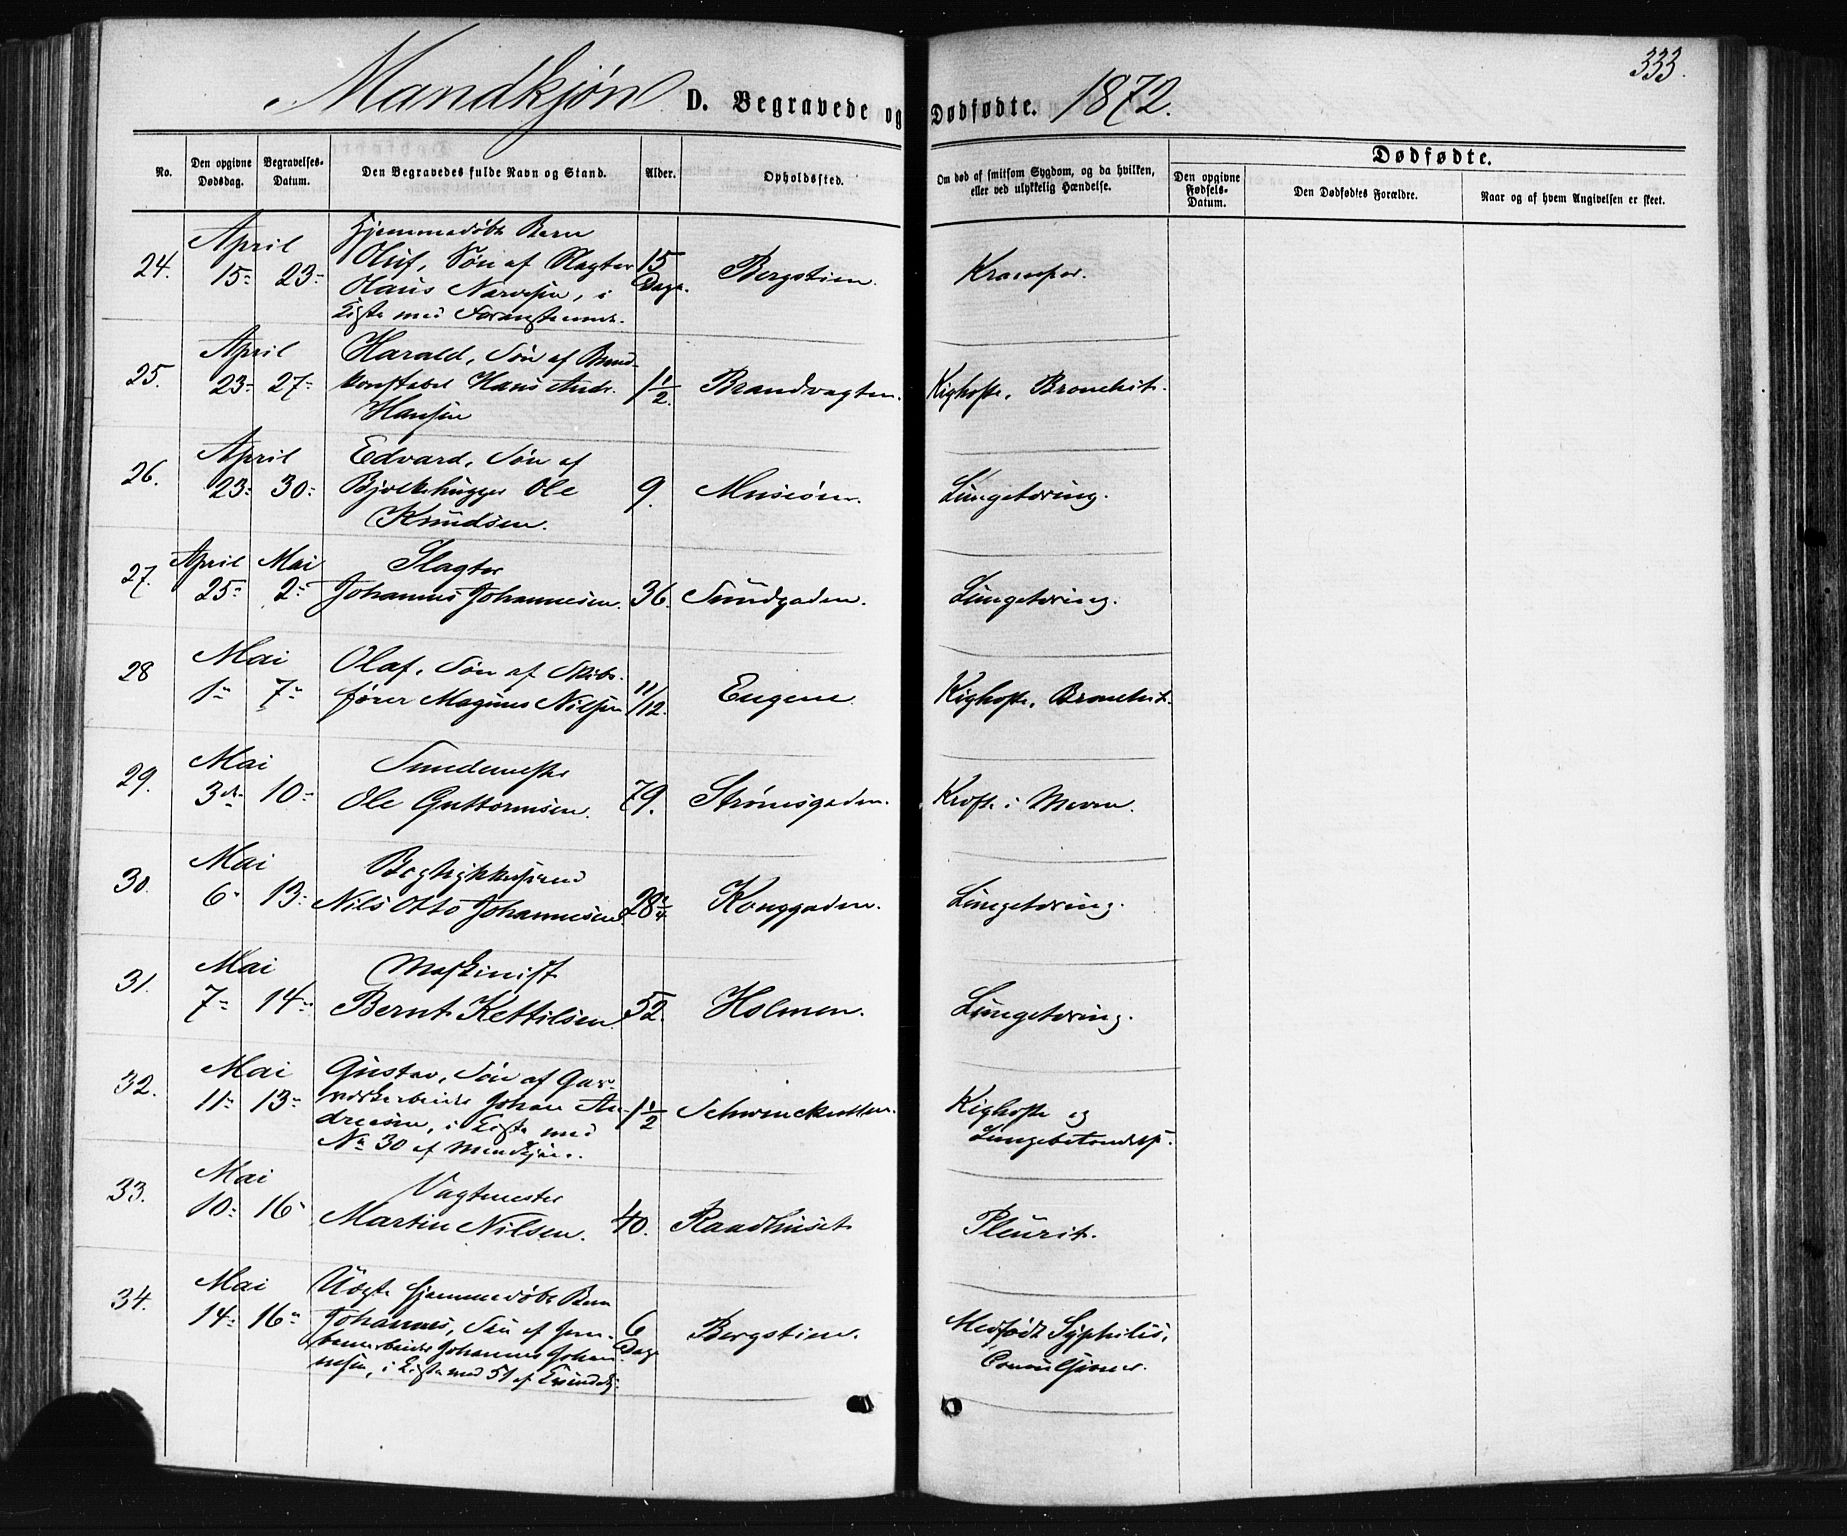 333.
Mandkjøn D. Begravede og Dødfødte. 1872.
No.
Den opgivne Dødsdag.
Begravelses-Datum.
Den Begravedes fulde Navn og Stand.
Alder.
Opholdssted.
Om død af smitsom Sygdom, og da hvilken,
eller ved ulykkelig Hændelse.
Dødfødte.
Den opgivne Fødsels-Datum.
Den Dødfødtes Forældre.
Naar og af hvem Angivelsen er skeet.
April Hjemmedøbt Barn
24. 15- 23- Oluf, Søn af Slagter 15 Bergstien. Kramper.
Hans Narvesen, i Dage.
Kiste med
April Harald, Søn af Brand-
25. 23- 27- konstabel Hans Andr. 1 1/2 Brandvagten. Kighoste, Bronchit.
Hansen
April Edvard, Søn af
26. 23- 30- Bjelkehugger Ole 9. Museøen. Lungetæring.
Knudsen.
April Mai Slagter
27. 25- 2- Johannes Johannesen. 36. Sundgaden. Lungetæring.
Mai Olaf, Søn af Skibs-
28 1- 7- fører Magnus Nilsen 11/12. Eugene. Kighoste, Bronchit.
Mai
29. 3die 10- Ole Guttormsen. 79. Strømsgaden. Kræft i Maven.
Mai
30. 6- 13- Nils Otto Johannesen 28 Konggaden. Lungetæring.
Mai Maskinist
31. 7- 14- Bernt Kettilsen 52. Holmen. Lungetæring.
Mai Gustav, Søn af Gas-
32. 11- 13- værkarbeider Johan An- 1 1/2 Kighoste og
dreesen, i Kiste med Lungebetændelse.
No 30 af Mandkjøn.
Mai Vagtmester
33. 10- 16- Martin Nilsen. 40. Raadhuset Pleurit.
Mai Uægte hjemmedøbt Barn
34. 14- 16- Johannes, Søn af Jern- 6 Bergstien. Medfødt Syphilis,
banearbeider Johannes Johan- Dage
nesen, i Kiste med 51 af Kvindekj.